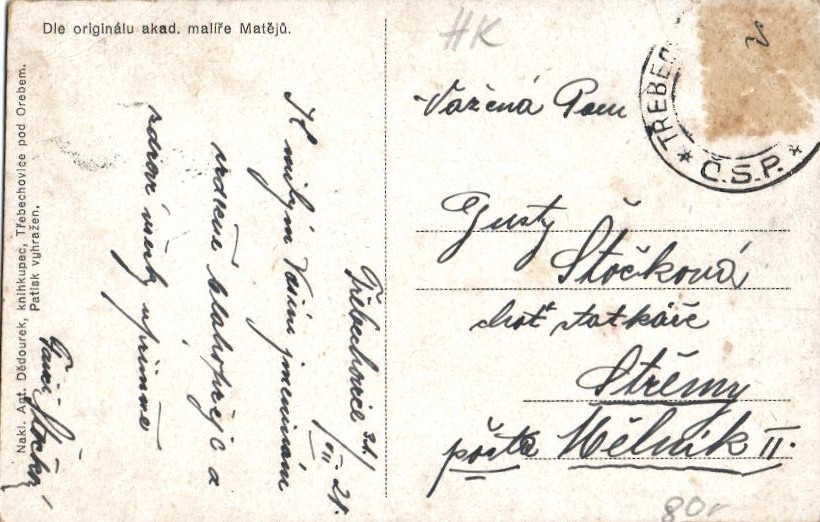 Dle originálu akad. malíře Matějů.
Nakl. Ant. Dědourek, knihkupec, Třebechovice pod Orebem.
Patisk vyhražen.
HK
TŘEBEC
* Č.S.P. *
Třebechovice 31/VII 21.
K milým Vašim jmeninám
srdečně blahopřeje a
zdraví uctivě upřímně
Vážená Paní
Gusty
Štočková
choť statkáře
Střemy
pošta Mělník II.
80